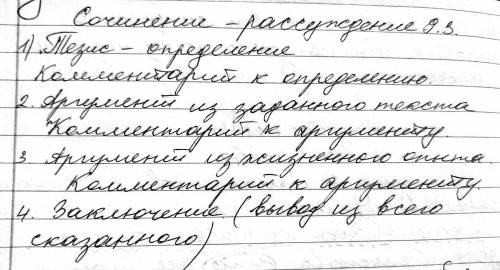 Сочинение - рассуждение 9.3.
1) Тезис - определение
Комментарий к определению.
2. Аргумент из заданного текста
Комментарий к аргументу.
3. Аргумент из жизненного опыта.
Комментарий к аргументу.
4. Заключение (вывод из всего
сказанного)